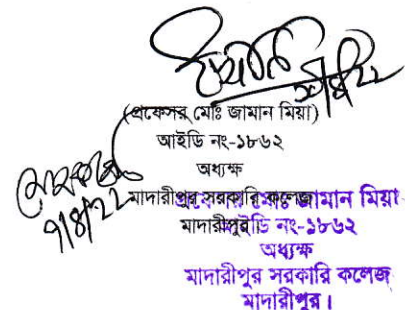 (প্রফেসর মোঃ জামান মিয়া)
আইডি নং-১৮৬২
অধ্যক্ষ
মাদারীপুর সরকারি কলেজ
মাদারীপুর।
প্রফেসর মোঃ জামান মিয়া
আইডি নং-১৮৬২
অধ্যক্ষ
মাদারীপুর সরকারি কলেজ
মাদারীপুর।